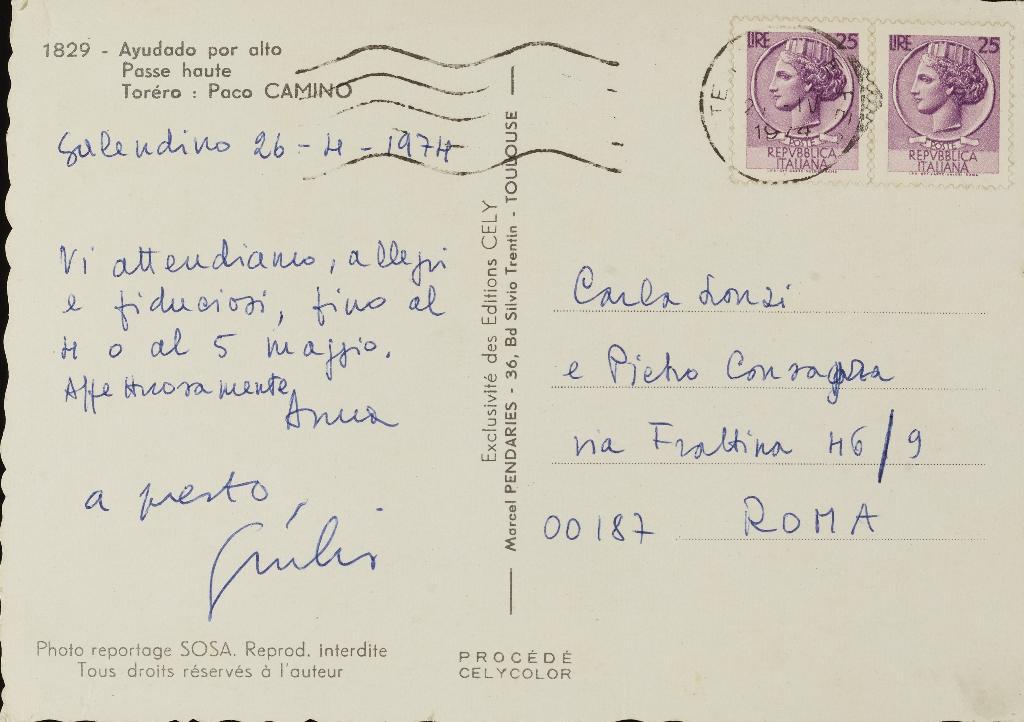 1829 - Ayudado por alto
Passe haute
Toréro : Paco CAMINO
Salendino 26-4-1974
Vi attendiamo, allegri
e fiduciosi, fino al
4 o al 5 maggio.
Affettuosamente
Anna
a presto,
Giulio
Photo reportage SOSA. Reprod. interdite
Tous droits réservés à l'auteur
Exclusivité des Editions CELY
Marcel PENDARIES - 36, Bd Silvio Trentin - TOULOUSE
PROCÉDÉ
CELYCOLOR
LIRE 25
POSTE
REPVBBLICA
ITALIANA
LIRE 25
POSTE
REPVBBLICA
ITALIANA
IV
1974
Carla Lonzi
e Pietro Consagra
via Frattina 46/9
00187 ROMA